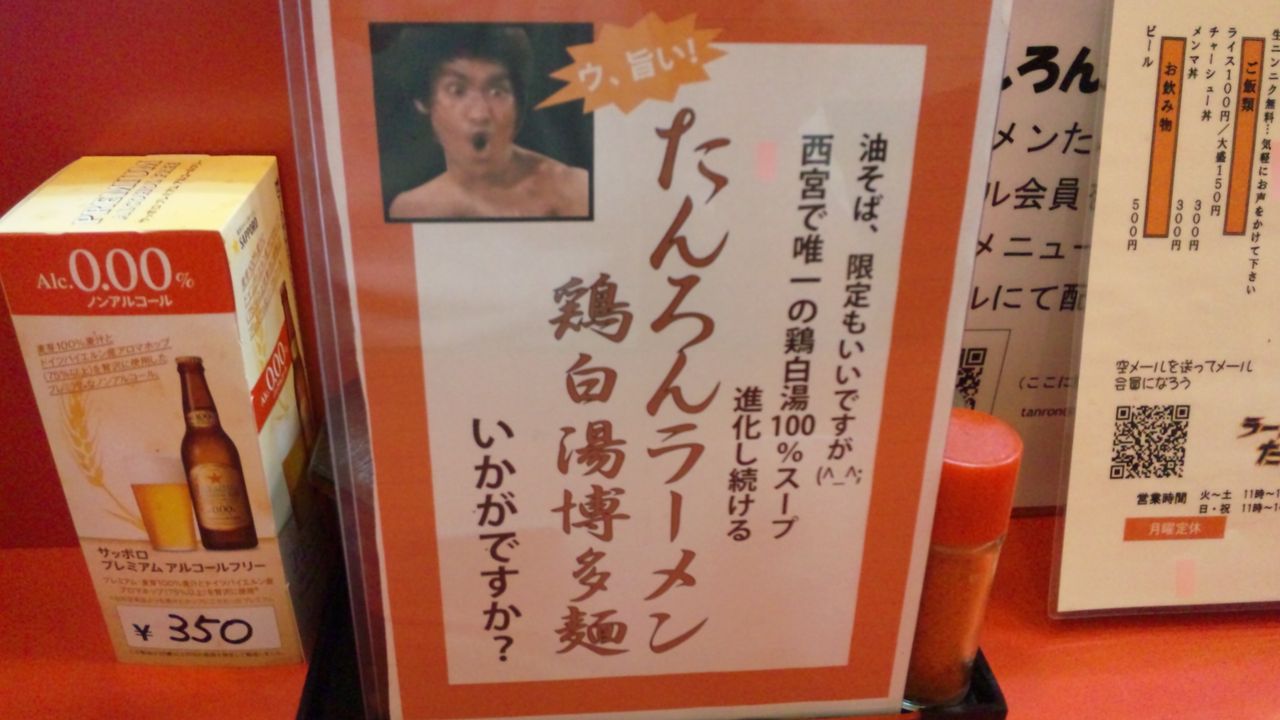 PREMIUM
SAPPORO
Alc.0.00%
ノンアルコール
麦芽100%麦汁と
ドイツバイエルン産アロマホップ
(75%以上)を贅沢に使用した
プレミアムなノンアルコール。
サッポロ
プレミアム アルコールフリー
¥ 350
ウ、旨い!
油そば、限定もいいですが(^_^;
西宮で唯一の鶏白湯100%スープ
進化し続ける
たんろんラーメン
鶏白湯博多麺
いかがですか?
ろん
メンた
ル会員
メニュー
ルにて配
(ここに
tanron
生ニンニク無料…気軽にお声をかけて下さい
ご飯類
ライス100円/大盛150円
チャーシュー丼 300円
メンマ丼 300円
お飲み物
ビール 500円
空メールを送ってメール
会員になろう
営業時間 火~土 11時~
日・祝 11時~
月曜定休